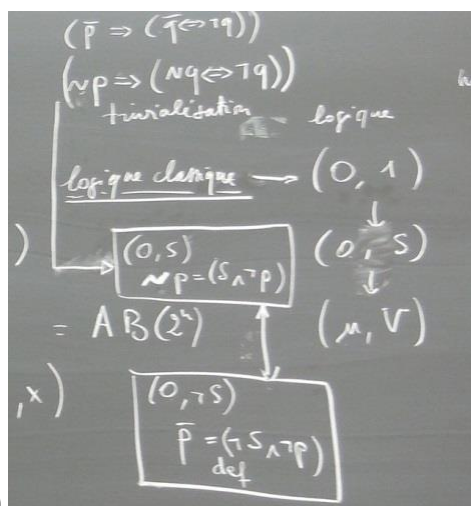 (p̄ => (q̄ <=> ¬q))
(~p => (~q <=> ¬q))
trivialisation
logique
logique classique → (0, 1)
↓
) (0, S) (0, S)
~p = (S ∧ ¬p)
↓
= AB(2ⁿ) (μ, V)
,x) (0, ¬S)
p̄ = (¬S ∧ ¬p)
def